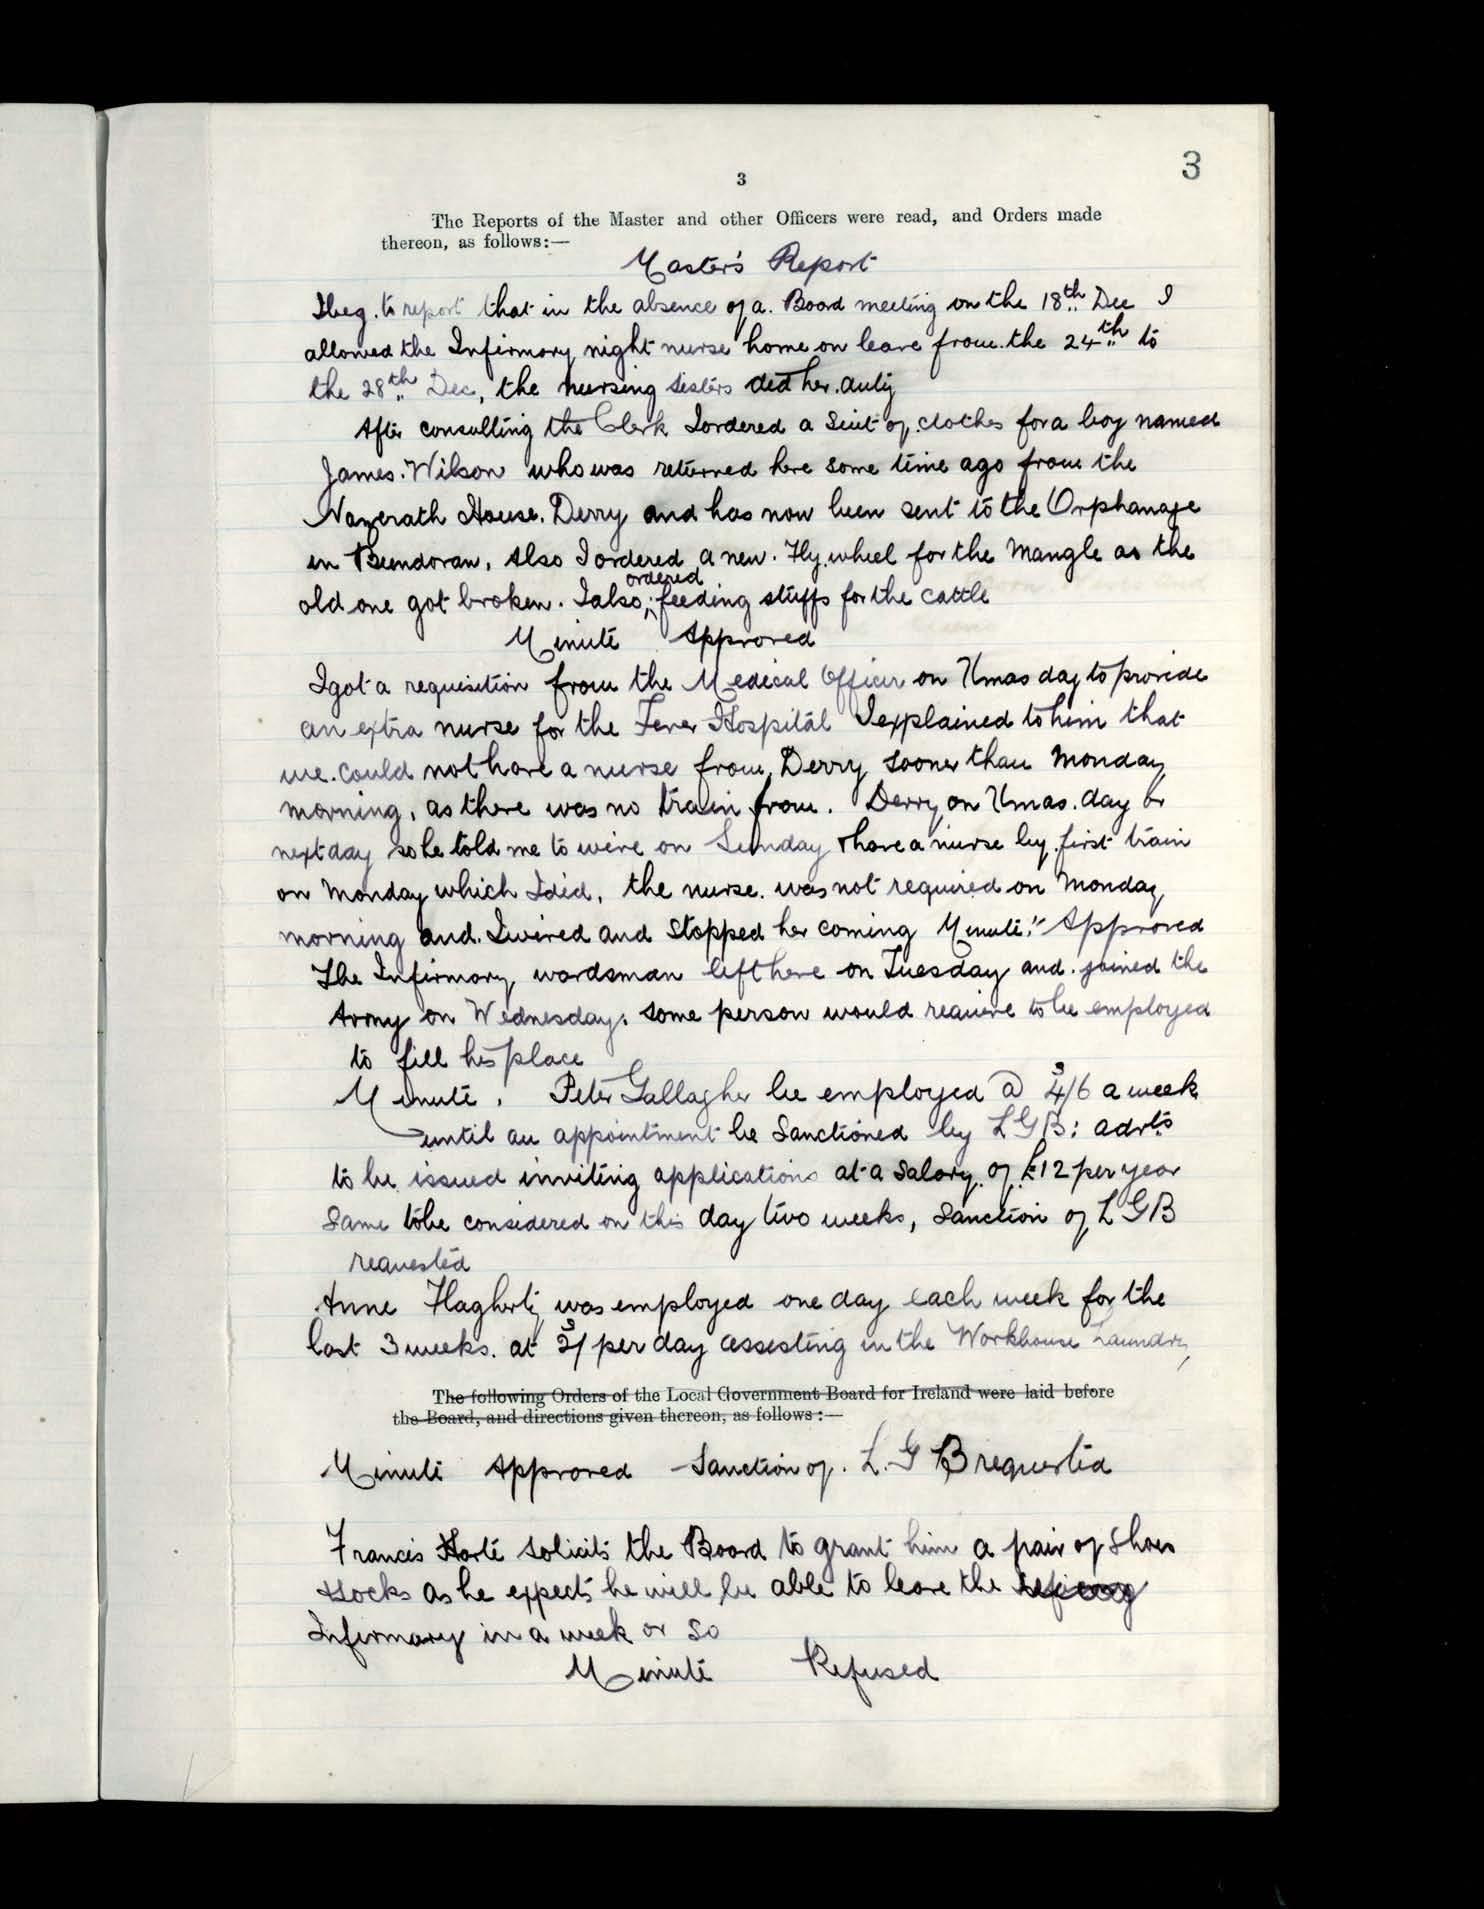 3
3
The Reports of the Master and other Officers were read, and Orders made
thereon, as follows:—
Master's Report
I beg to report that in the absence of a Board meeting on the 18th Dec I
allowed the Infirmary night nurse home on leave from the 24th to
the 28th Dec, the nursing sisters did her duty
After consulting the Clerk I ordered a Suit of clothes for a boy named
James Wilson who was returned here some time ago from the
Nazerath House, Derry and has now been sent to the Orphanage
in Bundoran, Also I ordered a new Fly wheel for the Mangle as the
old one got broken. I also ordered feeding stuffs for the cattle
Minute Approved
I got a requisition from the Medical Officer on Xmas day to provide
an extra nurse for the Fever Hospital I explained to him that
we could not have a nurse from Derry sooner than Monday
morning, as there was no train from Derry on Xmas day or
next day so he told me to wire on Sunday & have a nurse by first train
on Monday which I did, the nurse was not required on Monday
morning and I wired and stopped her coming Minute:- Approved
The Infirmary wardsman left here on Tuesday and joined the
Army on Wednesday. Some person would require to be employed
to fill his place
Minute. Peter Gallagher be employed @ 4/6 a week
until an appointment be Sanctioned by LGB: advts
to be issued inviting applications at a Salary of £12 per year
Same to be considered on this day two weeks, Sanction of LGB
requested
Anne Flagherty was employed one day each week for the
last 3 weeks at 2/ per day assisting in the Workhouse Laundry
The following Orders of the Local Government Board for Ireland were laid before
the Board, and directions given thereon, as follows:—
Minute Approved Sanction of L.G B requested
Francis Harte solicits the Board to grant him a pair of Shoes
& Socks as he expects he will be able to leave the
Infirmary in a week or so
Minute Refused